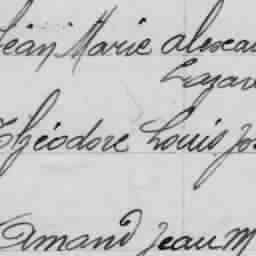 Jean Marie alexan
Lazare
Théodore Louis Jo
Amand Jean M